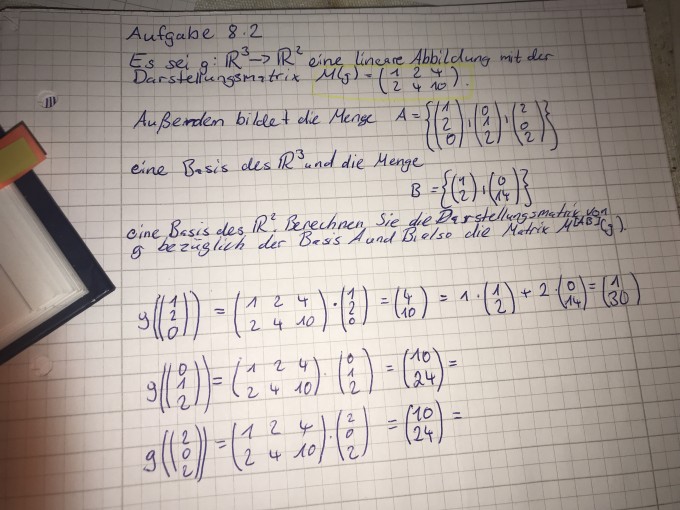 Aufgabe 8.2
Es sei g: ℝ³ → ℝ² eine lineare Abbildung mit der
Darstellungsmatrix M(g) = (1 2 4; 2 4 10).
Außerdem bildet die Menge A = {(1; 2; 0), (0; 1; 2), (2; 0; 2)}
eine Basis des ℝ³ und die Menge
B = {(1; 2), (0; 14)}
eine Basis des ℝ². Berechnen Sie die Darstellungsmatrix von
g bezüglich der Basis A und B, also die Matrix M^[AB](g).
g((1; 2; 0)) = (1 2 4; 2 4 10) · (1; 2; 0) = (4; 10) = 1 · (1; 2) + 2 · (0; 14) = (1; 30)
g((0; 1; 2)) = (1 2 4; 2 4 10) · (0; 1; 2) = (10; 24) =
g((2; 0; 2)) = (1 2 4; 2 4 10) · (2; 0; 2) = (10; 24) =